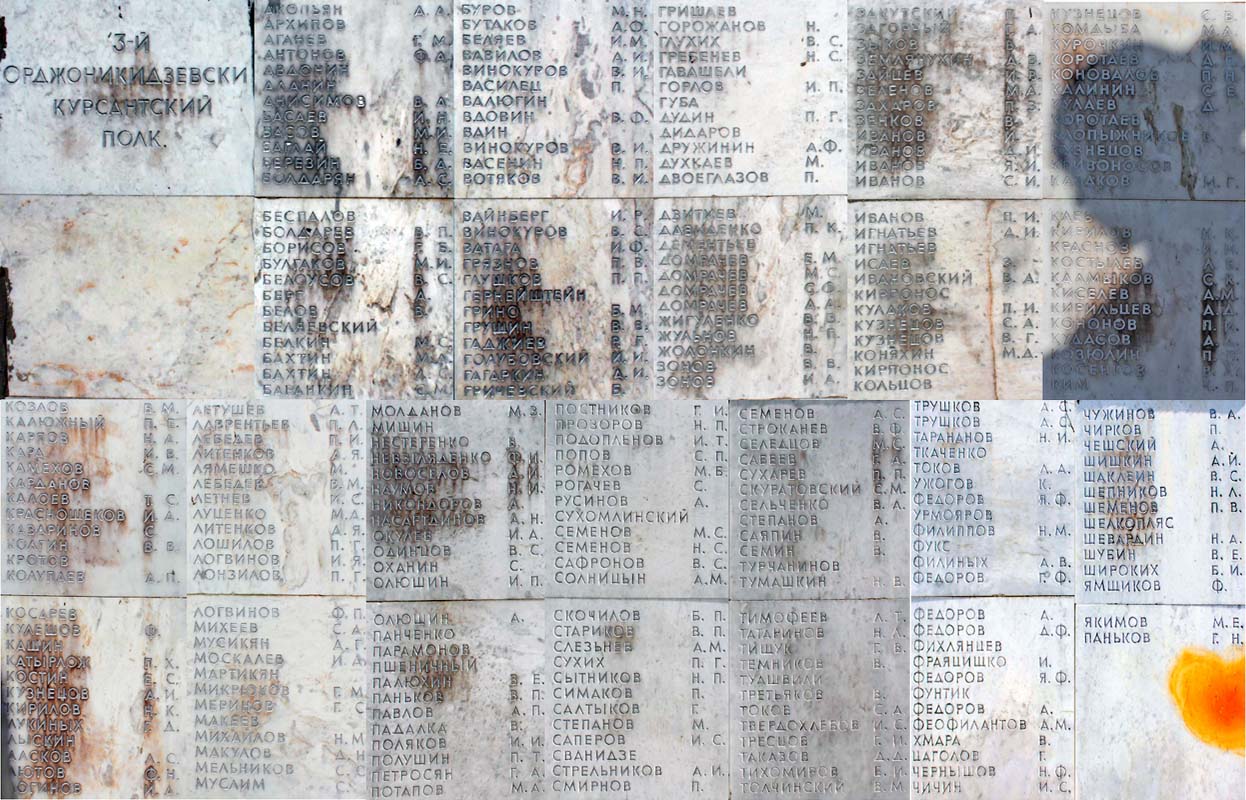 '3-Й
ОРДЖОНИКИДЗЕВСКИ
КУРСАНТСКИЙ
ПОЛК.
АКОПЬЯН А. А.
АРХИПОВ
АГАНЕВ Г. М.
АНТОНОВ
АНИСИМОВ В. А.
БАСОВ М. И.
БЕРЕЗИН Б. А.
БОЛДАРЯН А. С.
БУРОВ М. Н.
БУТАКОВ А. Ф.
БЕЛЯЕВ И. М.
ВАВИЛОВ А. И.
ВИНОКУРОВ В. И.
ВАСИЛЕЦ П.
ВАЛЮГИН
ВДОВИН В. Ф.
ВДИН
ВИНОКУРОВ В. И.
ВАСЕНИН Н. П.
ВОТЯКОВ В. И.
ГРИШАЕВ
ГОРОЖАНОВ Н.
ГЛУХИХ В. С.
ГРЕБЕНЕВ Н. С.
ГАВАШЕЛИ
ГОРЛОВ И. П.
ГУБА
ДУДИН П. Г.
ДИДАРОВ
ДРУЖИНИН А. Ф.
ДУХКАЕВ М.
ДВОЕГЛАЗОВ П.
ЗАКУТСКИЙ
ЗАГОРНЫЙ
ЗЫКОВ
ЗЕМЛЯНУХИН
ЗАЙЦЕВ
ЗЕЛЕНОВ М. А.
ЗАХАРОВ П. З.
ЗЕНКОВ
ИВАНОВ
ИВАНОВ
ИВАНОВ Я. И.
ИВАНОВ С. И.
КУЗНЕЦОВ С. В.
КОМДЫБА М. А.
КУРОЧКИН
КОРОТАЕВ
КОНОВАЛОВ
КАЛИНИН С. Е.
КУЛАЕВ
КОРОТАЕВ
КУЗНЕЦОВ
КРИВОНОСОВ
БЕСПАЛОВ
БОЛДАРЕВ В. П.
БОРИСОВ Г. Б.
БУЛГАКОВ М. И.
БЕЛОУСОВ В. С.
БЕРГ А.
БЕЛОВ В.
БЕЛЯЕВСКИЙ
БЕЛКИН М. С.
БАХТИН М.
БАХТИН А. С.
БАЛАНКИН
ВАЙНБЕРГ И. Р.
ВИНОКУРОВ В. С.
ВАТАГА И. Ф.
ГРЯЗНОВ П. В.
ГЛУШКОВ П. П.
ГЕРНЕЙШТЕЙН
ГРИНС Б. М.
ГРУЩИН В. В.
ГАДЖИЕВ В. Г.
ГОЛУБОВСКИЙ И. И.
ГАГАРКИН А. И.
ГРИЧЕВСКИЙ Б.
ДЗИТИЕВ М.
ДАВИДЕНКО П. К.
ДЕМЕНТЬЕВ
ДОМРАЧЕВ Е. М.
ДОМРАЧЕВ М. С.
ДОМРАЧЕВ С. Ф.
ДОМРАЧЕВ
ЖИГУЛЕНКО В. В.
ЖУЛЬНОВ Н. П.
ЖОЛОНКИН В.
ЗОНОВ В. В.
ЗОНОВ И. А.
ИВАНОВ П. И.
ИГНАТЬЕВ Д. И.
ИГНАТЬЕВ
ИСАЕВ З.
ИВАНОВСКИЙ В. А.
КИРПОНОС
КУЛАКОВ П. И.
КУЗНЕЦОВ С. А.
КУЗНЕЦОВ В. Г.
КОНЯХИН М. Д.
КИРПОНОС
КОЛЬЦОВ
КИРИЛОВ
КРАСНОВ
КОСТЫЛЕВ
КАЛМЫКОВ
КИСЕЛЕВ
КИРИЛЬЦЕВ
КОНОНОВ
КУДАСОВ
КОЗЮЛИН
КОСЕНКОВ
КИМ
КОЗЛОВ В. М.
КАЛЮЖНЫЙ П. Г.
КАРПОВ Н. А.
КАРА И. В.
КАМЕХОВ С. М.
КАРДАНОВ
КАЛОЕВ Т. С.
КРАСНОЩЕКОВ И. А.
КАВАРИНОВ С.
КОЛГИН В. В.
КРОТОВ
КОЛУПАЕВ А. П.
ЛЕТУШЕВ А. Т.
ЛАВРЕНТЬЕВ П. Л.
ЛЕБЕДЕВ П. И.
ЛИТЕНКОВ А. Я.
ЛЯМЕШКО М.
ЛЕБЕДЕВ В. М.
ЛЕТНЕВ И. С.
ЛУЦЕНКО М. Д.
ЛИТЕНКОВ А. Я.
ЛОШИЛОВ П. Г.
ЛОГВИНОВ И. Я.
ЛОНЗИЛОВ П. Г.
МОЛДАНОВ М. З.
МИЩИН
НЕСТЕРЕНКО В.
НЕВЫГЛЯДЕНКО Ф. И.
НОВОСЕЛОВ А. И.
НАУМОВ Н. И.
НИКОНДОРОВ А.
НАСАРТДИНОВ А. Н.
ОКУЛЕВ И. А.
ОДИНЦОВ В. С.
ОХАНИН С.
ОЛЮШИН И. П.
ПОСТНИКОВ Г. И.
ПРОЗОРОВ Н. П.
ПОДОПЛЕНОВ И. Т.
ПОПОВ С. П.
РОМЕХОВ М. Б.
РОГАЧЕВ С.
РУСИНОВ А.
СУХОМЛИНСКИЙ
СЕМЕНОВ М. С.
СЕМЕНОВ Н. С.
САФРОНОВ В. С.
СОЛНИЦЫН А. М.
СЕМЕНОВ А. С.
СТРОКАНЕВ В. Ф.
СЕЛЕДЦОВ М. С.
САБЕЕВ Г. А.
СУХАРЕВ П. П.
СКУРАТОВСКИЙ С. М.
СЕЛЬЧЕНКО В. А.
СТЕПАНОВ А.
САЯПИН В.
СЕМИН В.
ТУРЧАНИНОВ
ТУМАШКИН Н. В.
ТРУШКОВ А. С.
ТРУШКОВ А. Ф.
ТАРАНАНОВ Н. И.
ТКАЧЕНКО
ТОКОВ Л. А.
УЖОГОВ К.
ФЕДОРОВ Я. Ф.
УРМОЯРОВ
ФИЛИППОВ Н. М.
ФУКС
ФИЛИНЫХ А. В.
ФЕДОРОВ Г. Ф.
ЧУЖИНОВ В. А.
ЧИРКОВ П.
ЧЕШСКИЙ А.
ШИШКИН А. Й.
ШАКЛЕИН В. С.
ЩЕПНИКОВ Н. Л.
ШЕМЕНОВ П. В.
ШЕЛКОПЛЯС
ШЕВАРДИН Н. А.
ШУБИН В. Е.
ШИРОКИХ Б. И.
ЯМЩИКОВ Ф.
КОСАРЕВ
КУЛЕШОВ Ф.
КАШИН
КАТЫРЛОЖ П. Х.
КОСТИН Е. С.
КУЗНЕЦОВ А. И.
КИРИЛОВ Я. К.
ЛУКИНЫХ
ЛЫСКИН
ЛАСКОВ А. С.
ЛЮТОВ Ф. Н.
ЛОГИНОВ И. А.
ЛОГВИНОВ Ф. П.
МИХЕЕВ С. А.
МУСИКЯН А. Г.
МОСКАЛЕВ И. А.
МАРТИКЯН
МИКРЮКОВ Г. М.
МЕРИНОВ Г. С.
МАКЕЕВ
МИХАЙЛОВ Н. М.
МАКУЛОВ
МЕЛЬНИКОВ
МУСЛИМ С.
ОЛЮЩИН А.
ПАНЧЕНКО
ПАРАМОНОВ
ПШЕНИЧНЫЙ
ПАЛЮХИН В. Е.
ПАНЬКОВ В. П.
ПАВЛОВ А. П.
ПАДАЛКА В.
ПОЛЯКОВ И. И.
ПОЛУШИН П. Т.
ПЕТРОСЯН Г. А.
ПОТАПОВ М. А.
СКОЧИЛОВ Б. П.
СТАРИКОВ В. П.
СЛЕЗЬНЕВ А. М.
СУХИХ П. Г.
СЫТНИКОВ Н. П.
СИМАКОВ П.
САЛТЫКОВ Г.
СТЕПАНОВ М.
САПЕРОВ И. С.
СВАНИДЗЕ
СТРЕЛЬНИКОВ А. И.
СМИРНОВ П.
ТИМОФЕЕВ Л. Т.
ТАТАРИНОВ Н. Л.
ТИЩУК Г. В.
ТЕМНИКОВ В.
ТУДШВИЛИ
ТРЕТЬЯКОВ В.
ТОКОВ С. А.
ТВЕРДОХЛЕБОВ И. С.
ТРЕСЦОВ Г. И.
ТАКАЗОВ Д. Д.
ТИХОМИРОВ Б. И.
ТОЛЧИНСКИЙ В. М.
ФЕДОРОВ А.
ФЕДОРОВ Д. Ф.
ФИХЛЯНЦЕВ
ФРАЯЦИШКО И.
ФЕДОРОВ Я. Ф.
ФУНТИК
ФЕДОРОВ А.
ФЕОФИЛАНТОВ А. М.
ХМАРА В.
ЦАГОЛОВ Г.
ЧЕРНЫШОВ Н. Ф.
ЧИЧИН И. С.
ЯКИМОВ М. Е.
ПАНЬКОВ Г. Н.